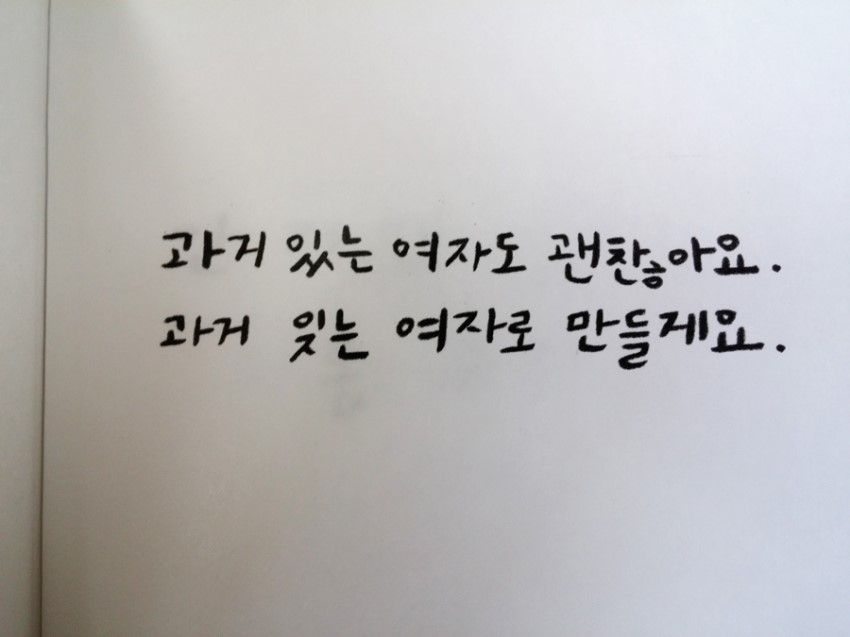 과거 있는 여자도 괜찮아요.
과거 잊는 여자로 만들게요.